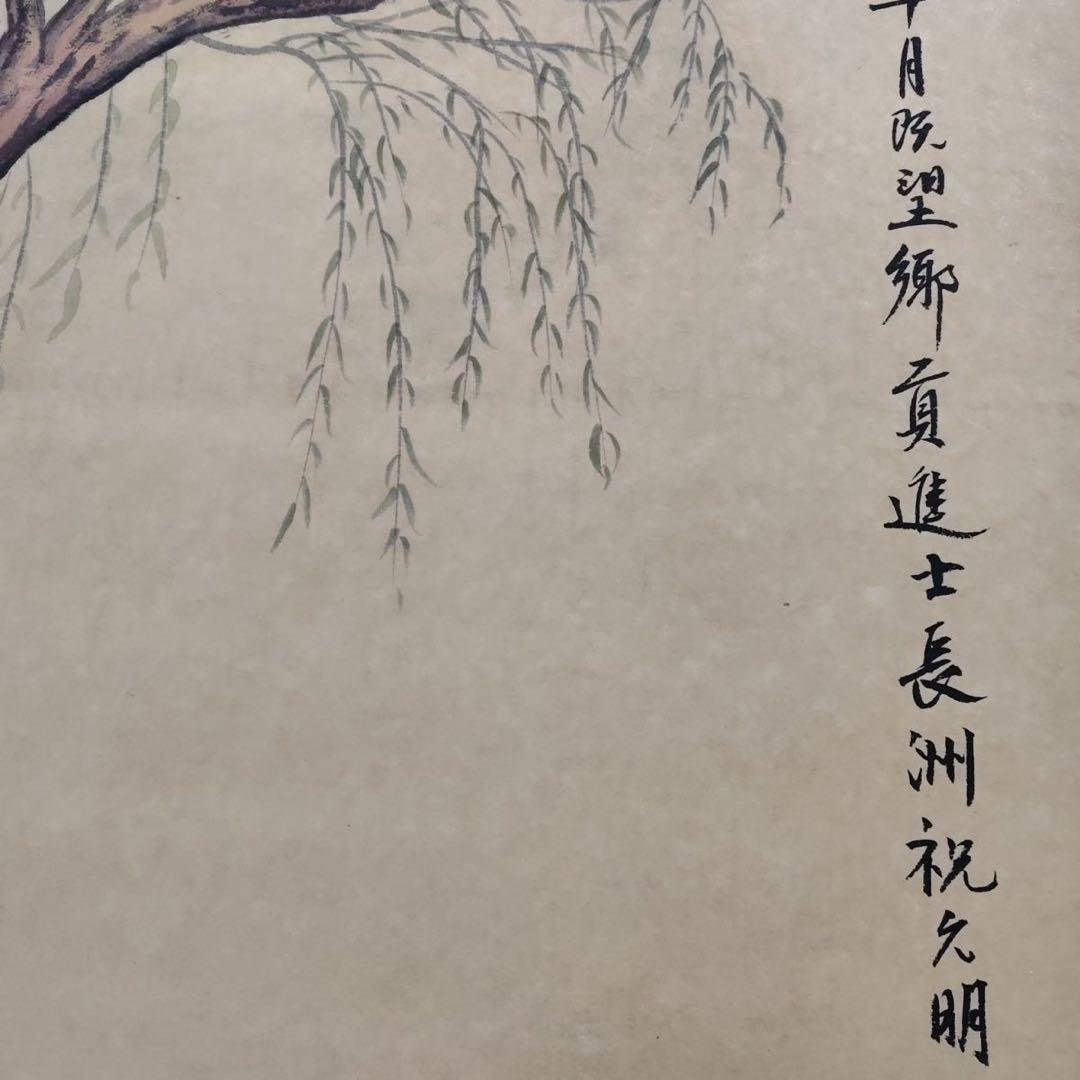 月既望鄉貢進士長洲祝允明